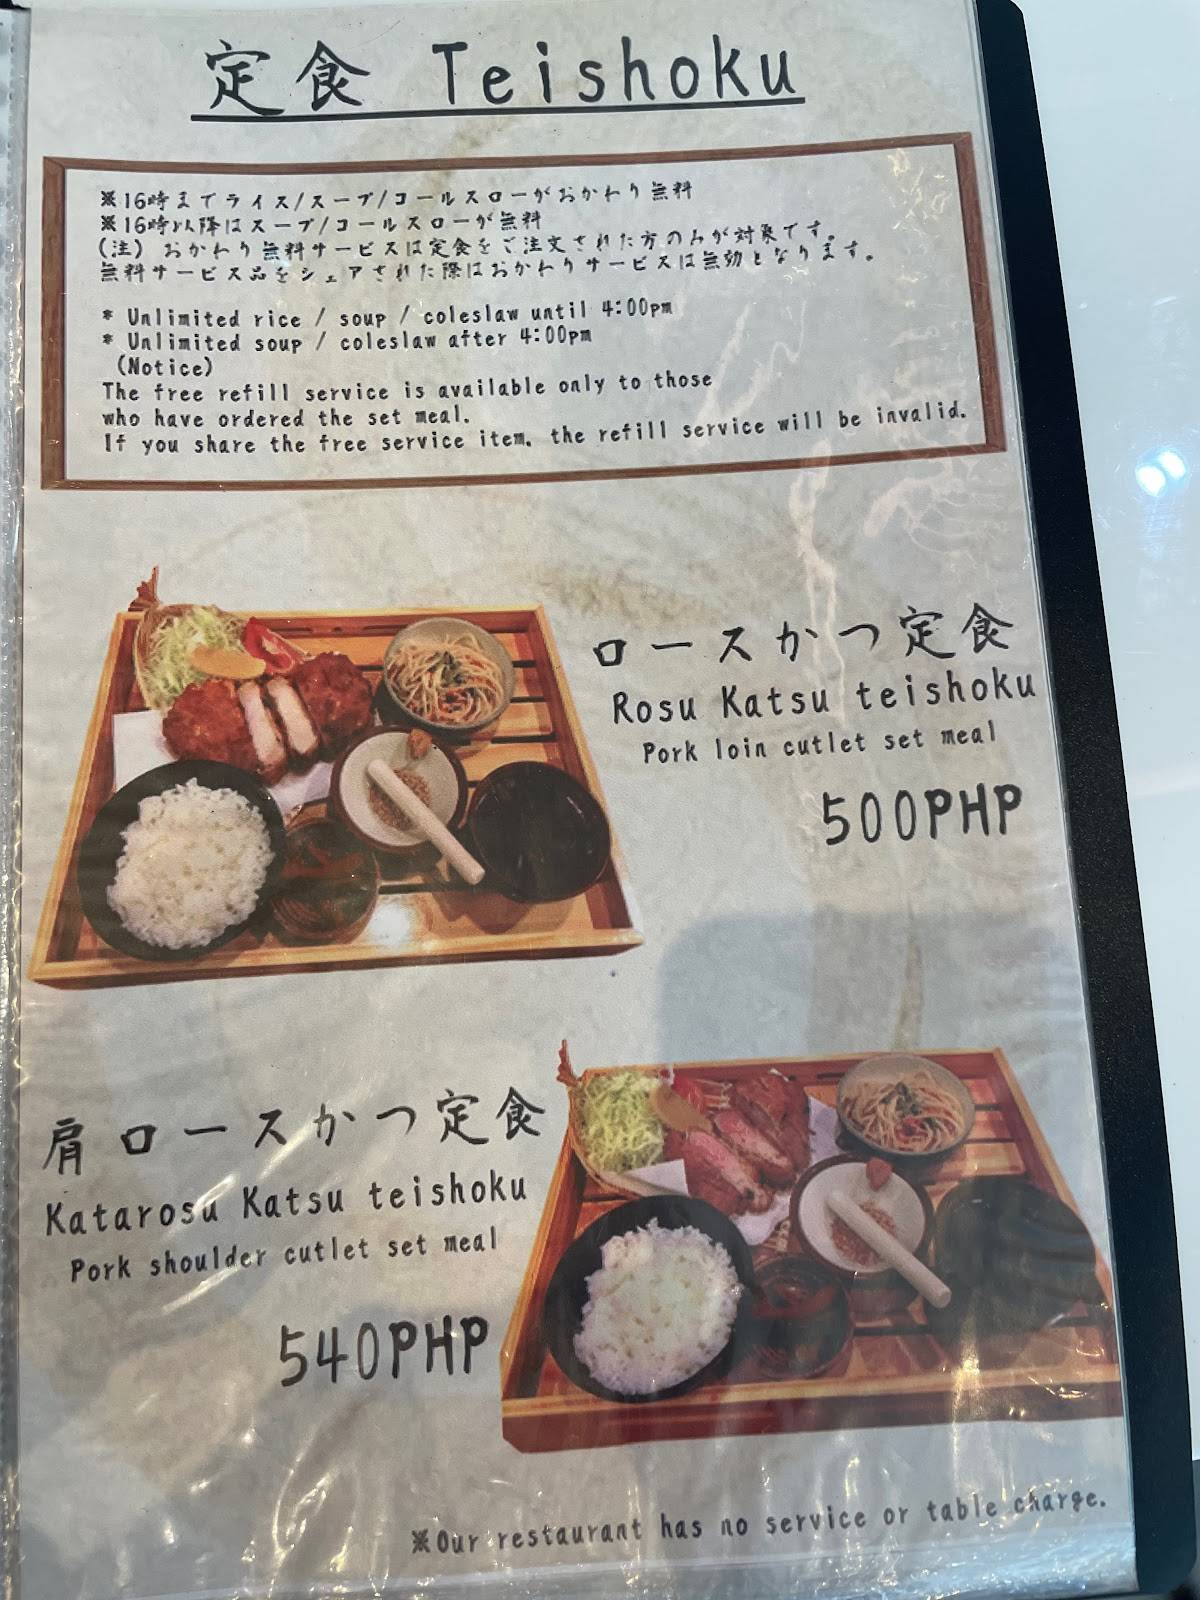 定食 Teishoku
※16時までライス/スープ/コールスローがおかわり無料
※16時以降はスープ/コールスローが無料
(注) おかわり無料サービスは定食をご注文された方のみが対象です。
無料サービス品をシェアされた際はおかわりサービスは無効となります。
* Unlimited rice / soup / coleslaw until 4:00pm
* Unlimited soup / coleslaw after 4:00pm
(Notice)
The free refill service is available only to those
who have ordered the set meal.
If you share the free service item, the refill service will be invalid.
ロースかつ定食
Rosu Katsu teishoku
Pork loin cutlet set meal
500PHP
肩ロースかつ定食
Katarosu Katsu teishoku
Pork shoulder cutlet set meal
540PHP
※Our restaurant has no service or table charge.